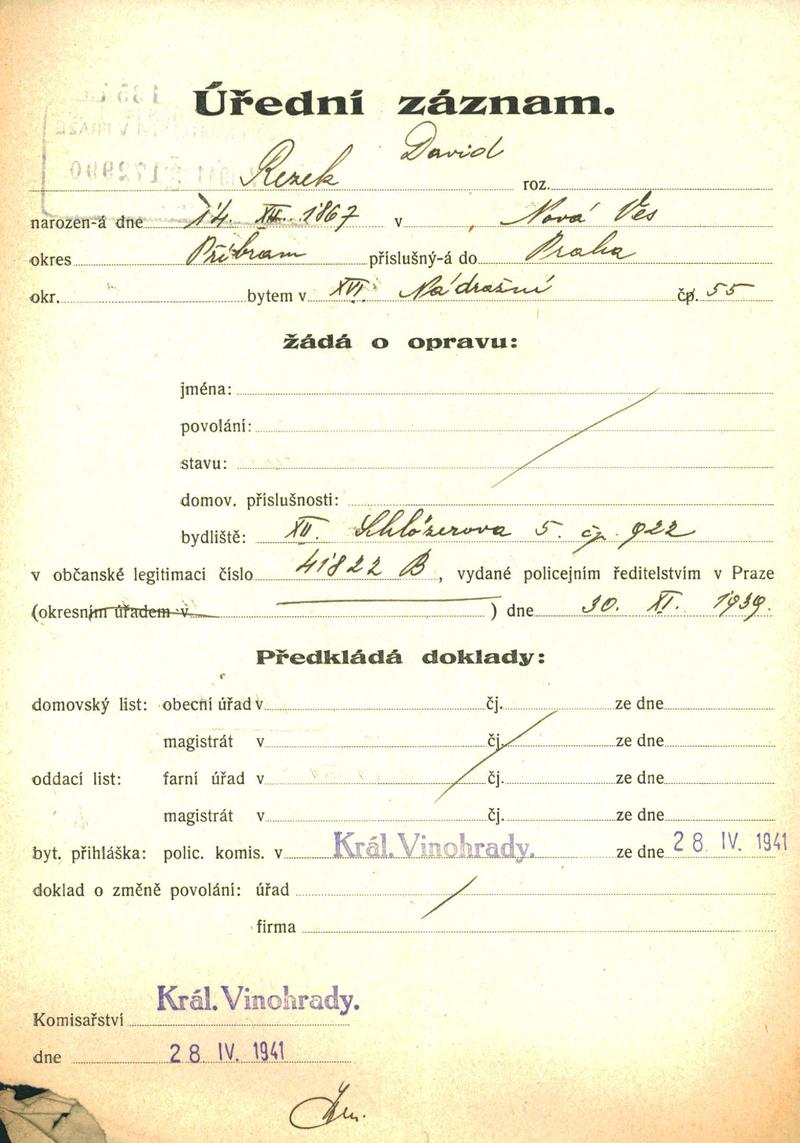 Úřední záznam.
Rezek David roz.
narozen-á dne 14. XII. 1867 v Nová Ves
okres Příbram příslušný-á do Praha
okr. bytem v XVI. Nádražní čp. 55
žádá o opravu:
jména:
povolání:
stavu:
domov. příslušnosti:
bydliště: XII. Schlözerova 5. čp. 922
v občanské legitimaci číslo 41822 B, vydané policejním ředitelstvím v Praze
(okresním úřadem v ) dne 30. XI. 1939.
Předkládá doklady:
domovský list: obecní úřad v čj. ze dne
magistrát v čj. ze dne
oddací list: farní úřad v čj. ze dne
magistrát v čj. ze dne
byt. přihláška: polic. komis. v Král. Vinohrady. ze dne 28. IV. 1941
doklad o změně povolání: úřad
firma
Komisařství Král. Vinohrady.
dne 28. IV. 1941